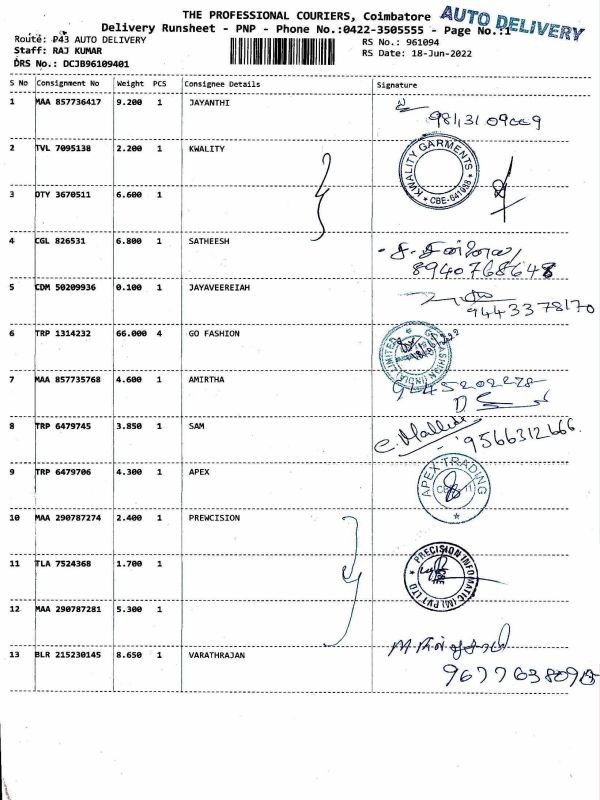 THE PROFESSIONAL COURIERS, Coimbatore
AUTO DELIVERY
Delivery Runsheet - PNP - Phone No.:0422-3505555 - Page No.:1
Route: P43 AUTO DELIVERY
RS No.: 961094
Staff: RAJ KUMAR
RS Date: 18-Jun-2022
DRS No.: DCJB96109401
S No Consignment No Weight PCS Consignee Details Signature
1 MAA 857736417 9.200 1 JAYANTHI
2 TVL 7095138 2.200 1 KWALITY
KWALITY GARMENTS * CBE-641008 *
3 OTY 3670511 6.600 1
4 CGL 826531 6.800 1 SATHEESH
8940768648
5 CDM 50209936 0.100 1 JAYAVEEREIAH
9443378170
6 TRP 1314232 66.000 4 GO FASHION
FASHION (INDIA) LIMITED
7 MAA 857735768 4.600 1 AMIRTHA
9445202278
8 TRP 6479745 3.850 1 SAM
9566312666
9 TRP 6479706 4.300 1 APEX
APEX TRADING
10 MAA 290787274 2.400 1 PREWCISION
11 TLA 7524368 1.700 1
PRECISION INFOMATIC (M) PVT LTD
12 MAA 290787281 5.300 1
13 BLR 215230145 8.650 1 VARATHRAJAN